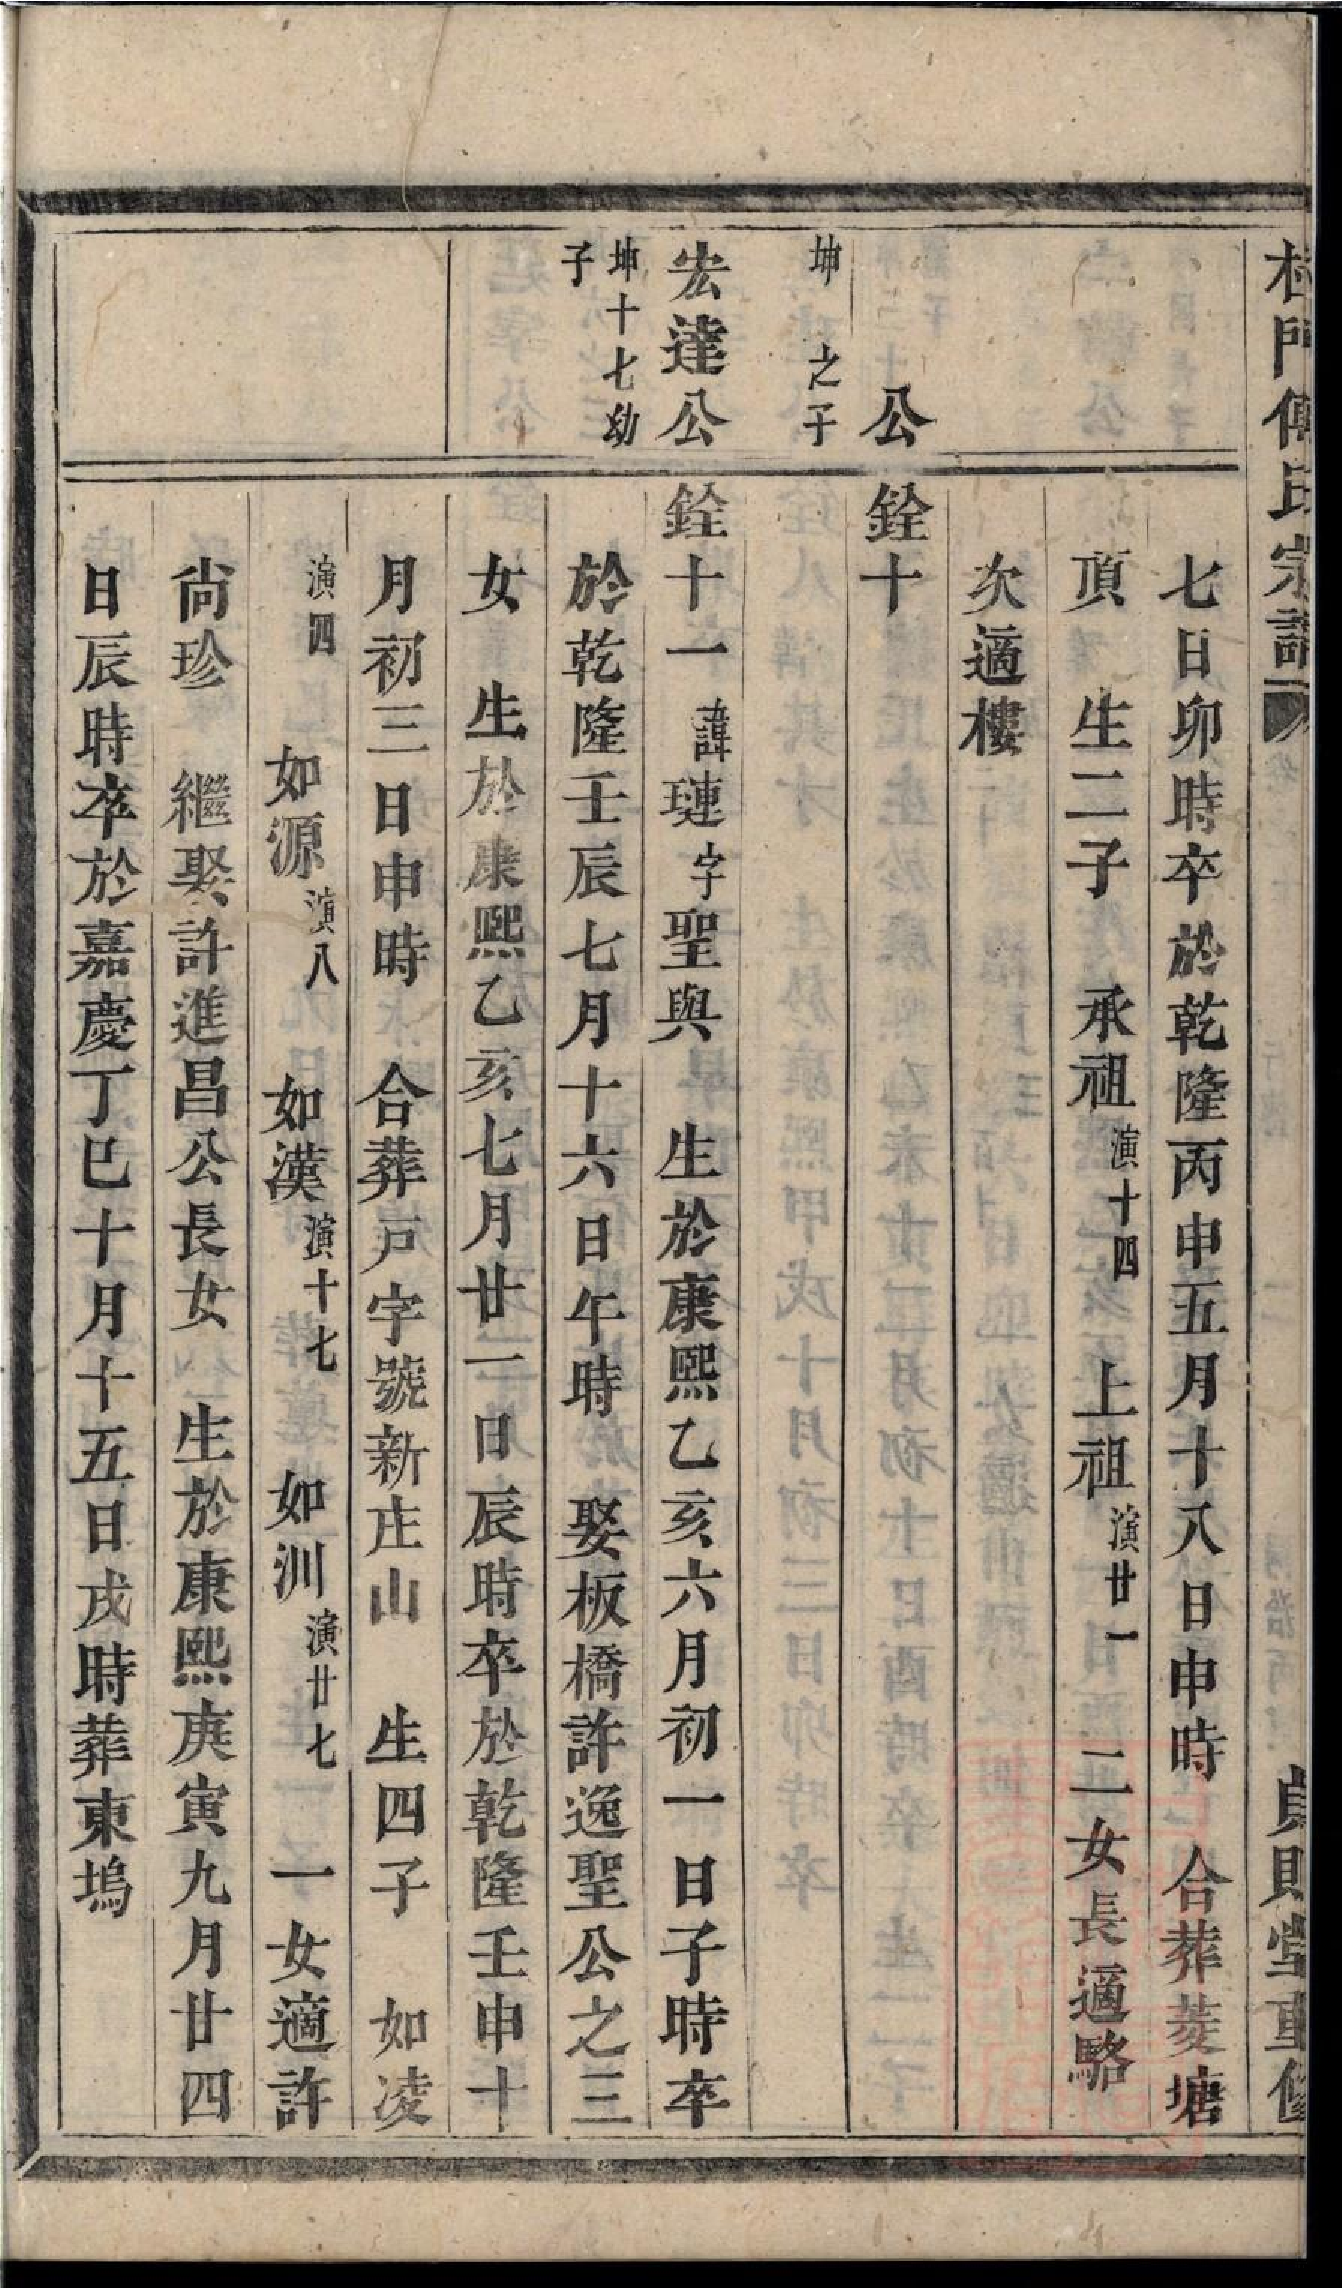 杜門傅氏宗譜
貞則堂重修
七日卯時卒於乾隆丙申五月十八日申時　合葬菱塘
頂　生二子　承祖演十四　上祖演廿一　二女長適駱
次適樓
公
銓十
坤　之子
宏達公
銓十一諱璉字聖與　生於康熙乙亥六月初一日子時卒
坤十七幼
子
於乾隆壬辰七月十六日午時　娶板橋許逸聖公之三
女　生於康熙乙亥七月廿二日辰時卒於乾隆壬申十
月初三日申時　合葬戸字號新庄山　生四子　如凌
演四　如源演八　如漢演十七　如洲演廿七　一女適許
尙珍　繼娶許進昌公長女　生於康熙庚寅九月廿四
日辰時卒於嘉慶丁巳十月十五日戌時葬東塢